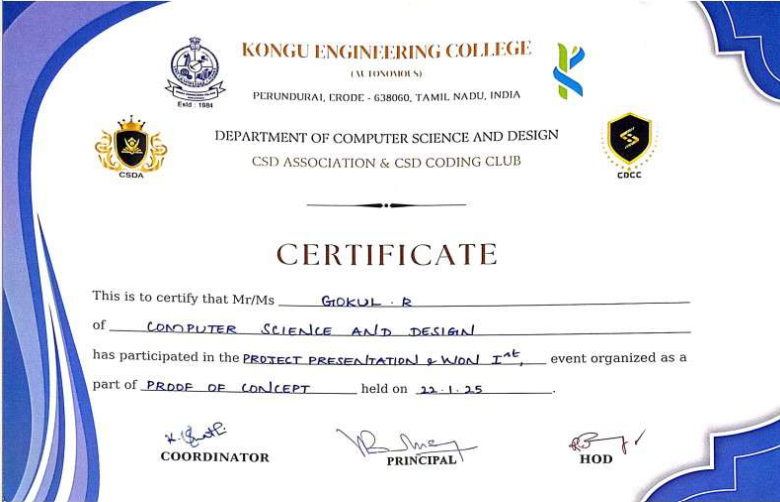 KONGU ENGINEERING COLLEGE
(AUTONOMOUS)
PERUNDURAI, ERODE - 638060, TAMIL NADU, INDIA
Estd : 1984
DEPARTMENT OF COMPUTER SCIENCE AND DESIGN
CSD ASSOCIATION & CSD CODING CLUB
CSDA
CDCC
CERTIFICATE
This is to certify that Mr/Ms GOKUL . R
of COMPUTER SCIENCE AND DESIGN
has participated in the PROJECT PRESENTATION & WON Ist, event organized as a
part of PROOF OF CONCEPT held on 22.1.25.
COORDINATOR
PRINCIPAL
HOD